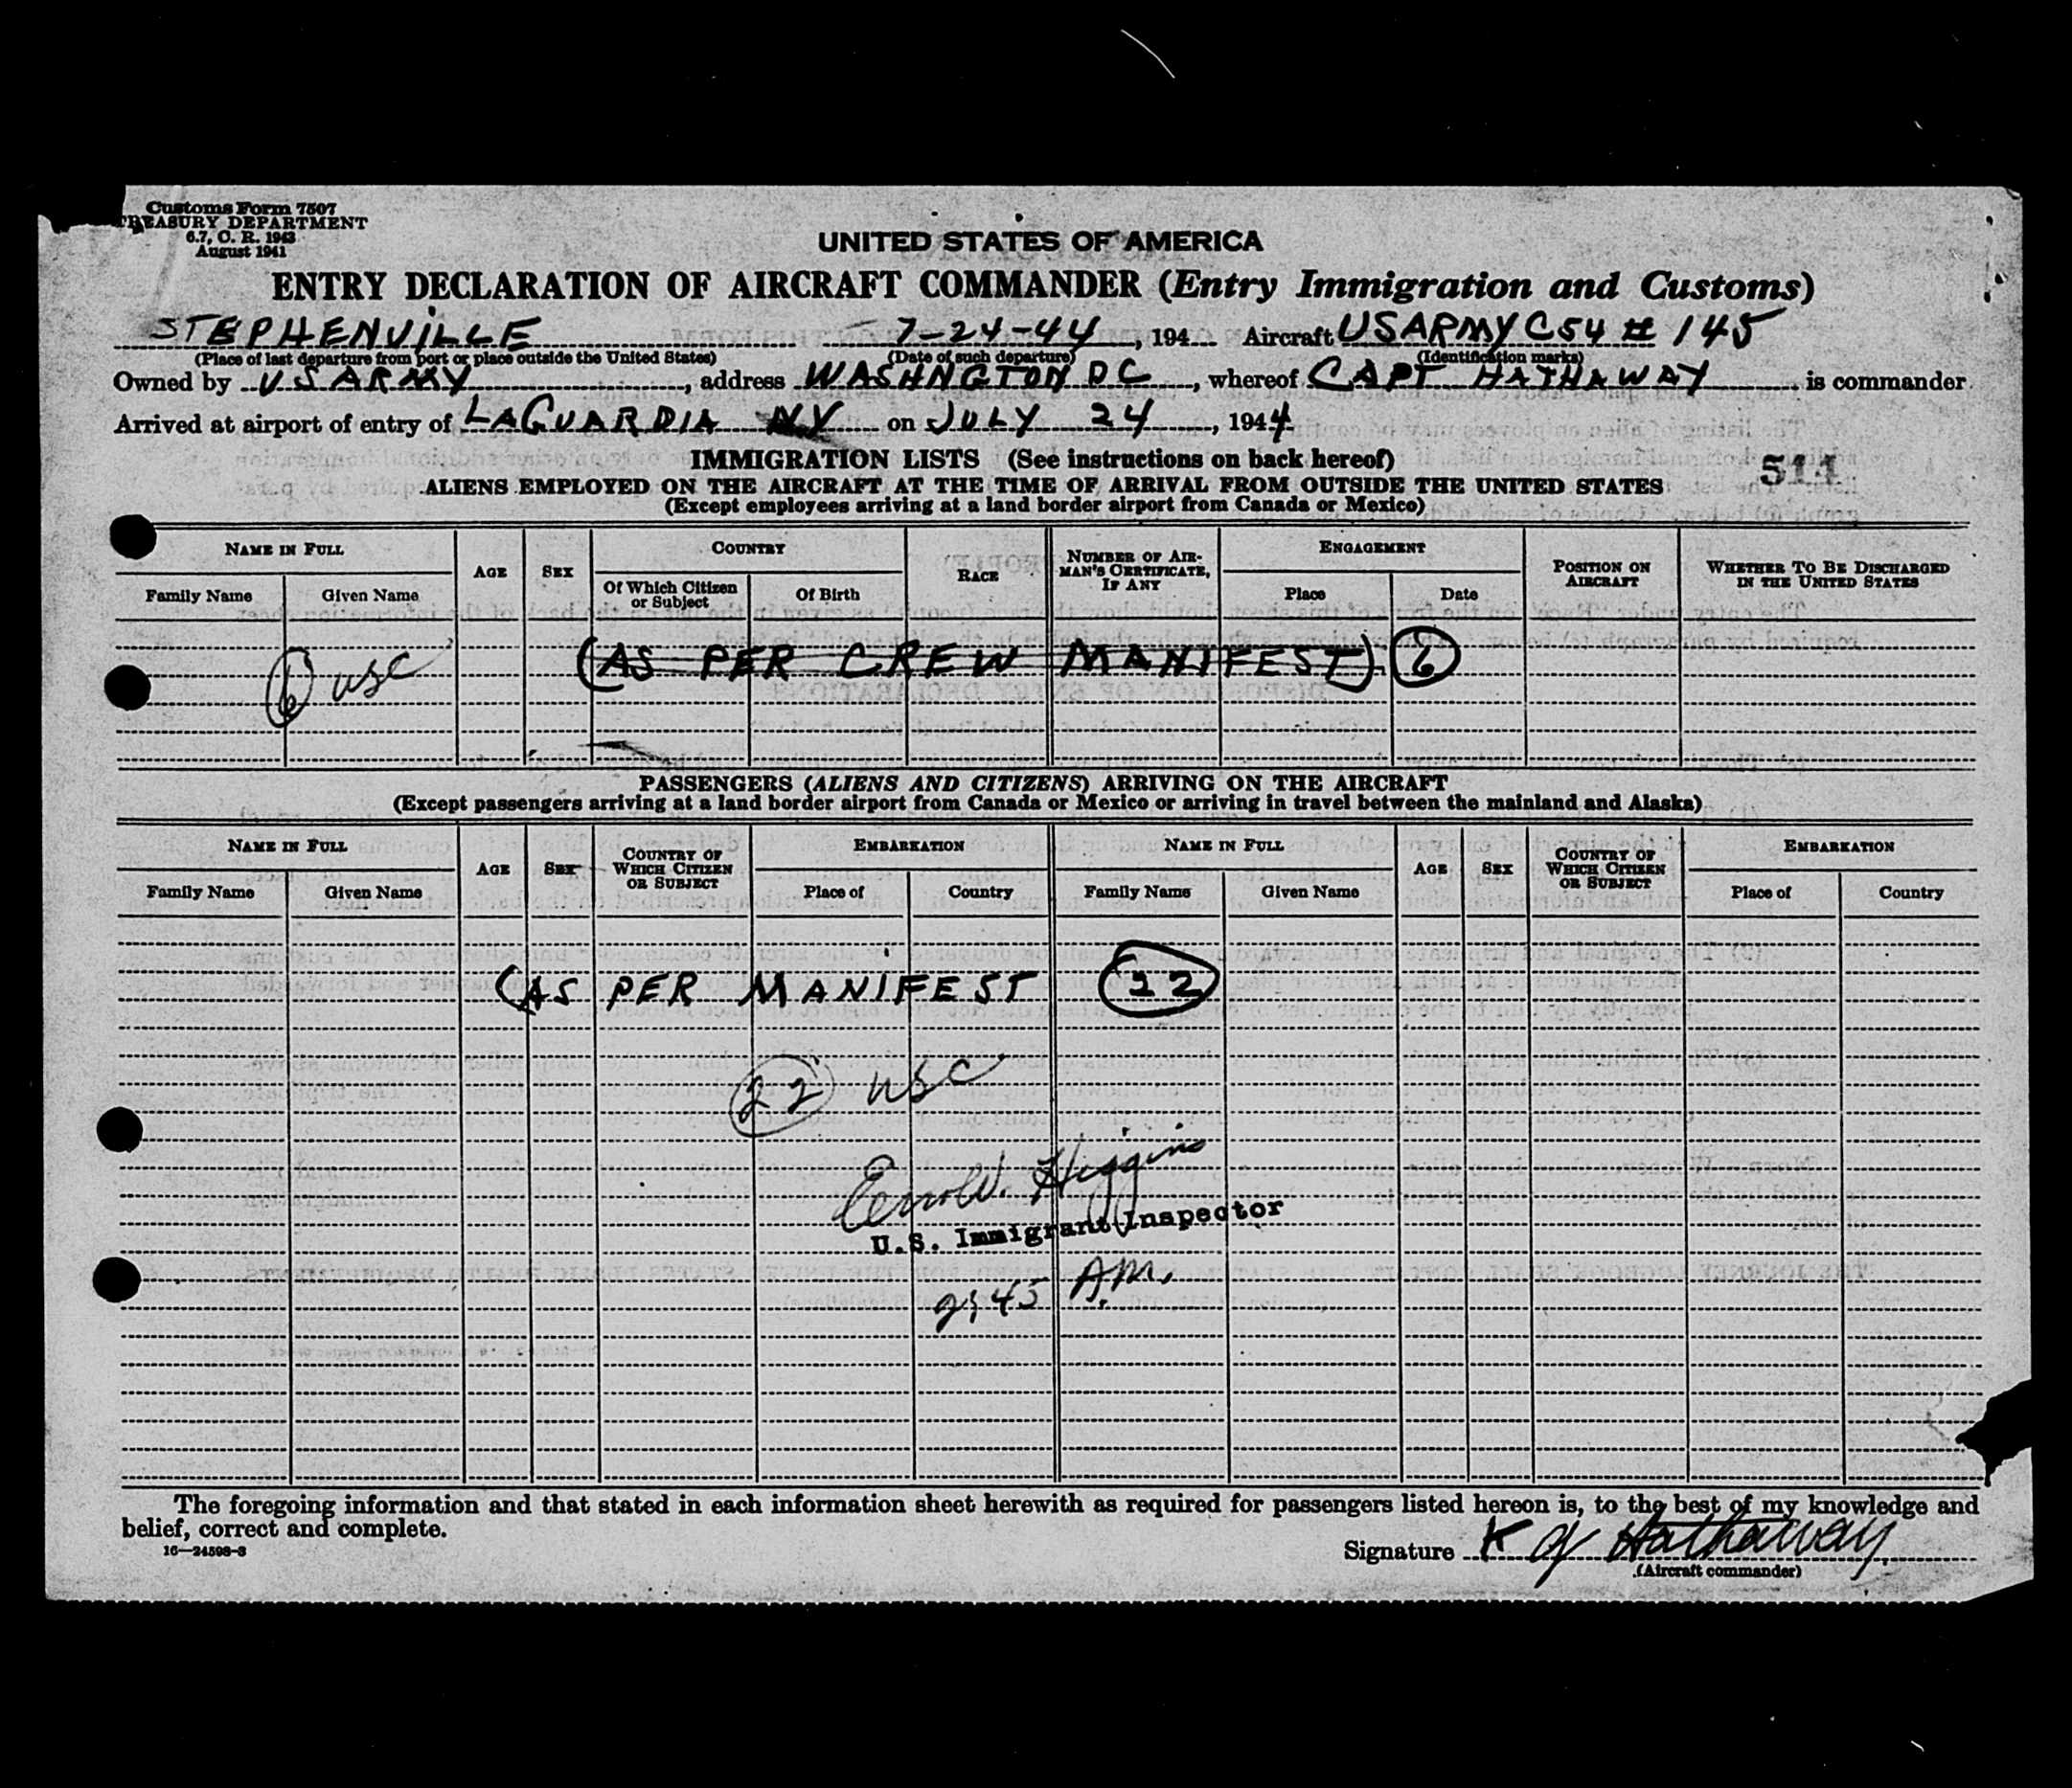 Customs Form 7507
TREASURY DEPARTMENT
6.7, C. R. 1943
August 1941
UNITED STATES OF AMERICA
ENTRY DECLARATION OF AIRCRAFT COMMANDER (Entry Immigration and Customs)
STEPHENVILLE 7-24-44, 194 Aircraft US ARMY C54 # 145
(Place of last departure from port or place outside the United States) (Date of such departure) (Identification marks)
Owned by US ARMY, address WASHNGTON DC, whereof CAPT HATHAWAY is commander
Arrived at airport of entry of LAGUARDIA NY on JULY 24, 1944
IMMIGRATION LISTS (See instructions on back hereof)
514
ALIENS EMPLOYED ON THE AIRCRAFT AT THE TIME OF ARRIVAL FROM OUTSIDE THE UNITED STATES
(Except employees arriving at a land border airport from Canada or Mexico)
NAME IN FULL AGE SEX COUNTRY RACE NUMBER OF AIRMAN'S CERTIFICATE, IF ANY ENGAGEMENT POSITION ON AIRCRAFT WHETHER TO BE DISCHARGED IN THE UNITED STATES
Family Name Given Name Of Which Citizen or Subject Of Birth Place Date
(AS PER CREW MANIFEST) 6
6 USC
PASSENGERS (ALIENS AND CITIZENS) ARRIVING ON THE AIRCRAFT
(Except passengers arriving at a land border airport from Canada or Mexico or arriving in travel between the mainland and Alaska)
NAME IN FULL AGE SEX COUNTRY OF WHICH CITIZEN OR SUBJECT EMBARKATION NAME IN FULL AGE SEX COUNTRY OF WHICH CITIZEN OR SUBJECT EMBARKATION
Family Name Given Name Place of Country Family Name Given Name Place of Country
(AS PER MANIFEST 22
22 USC
W. Higgins
U.S. Immigrant Inspector
2:45 A.M.
The foregoing information and that stated in each information sheet herewith as required for passengers listed hereon is, to the best of my knowledge and
belief, correct and complete.
16—24598-3
Signature K G Hathaway
(Aircraft commander)